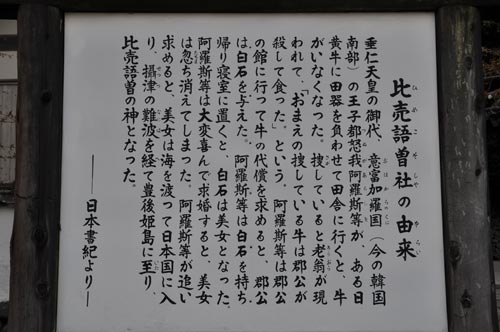 比売語曽社の由来
垂仁天皇の御代、意富加羅国(今の韓国
南部)の王子都怒我阿羅斯等が、ある日
黄牛に田器を負わせて田舎に行くと、牛
がいなくなった。捜していると老翁が現
われて、「おまえの捜している牛は郡公が
殺して食った。」という。阿羅斯等は郡公
の館に行って牛の代償を求めると、郡公
は白石を与えた。阿羅斯等は白石を持ち
帰り寝室に置くと、白石は美女となった。
阿羅斯等は大変喜んで求婚すると、美女
は忽ち消えてしまった。阿羅斯等が追い
求めると、美女は海を渡って日本国に入
り、摂津の難波を経て豊後姫島に至り、
比売語曽の神となった。
——日本書紀より—